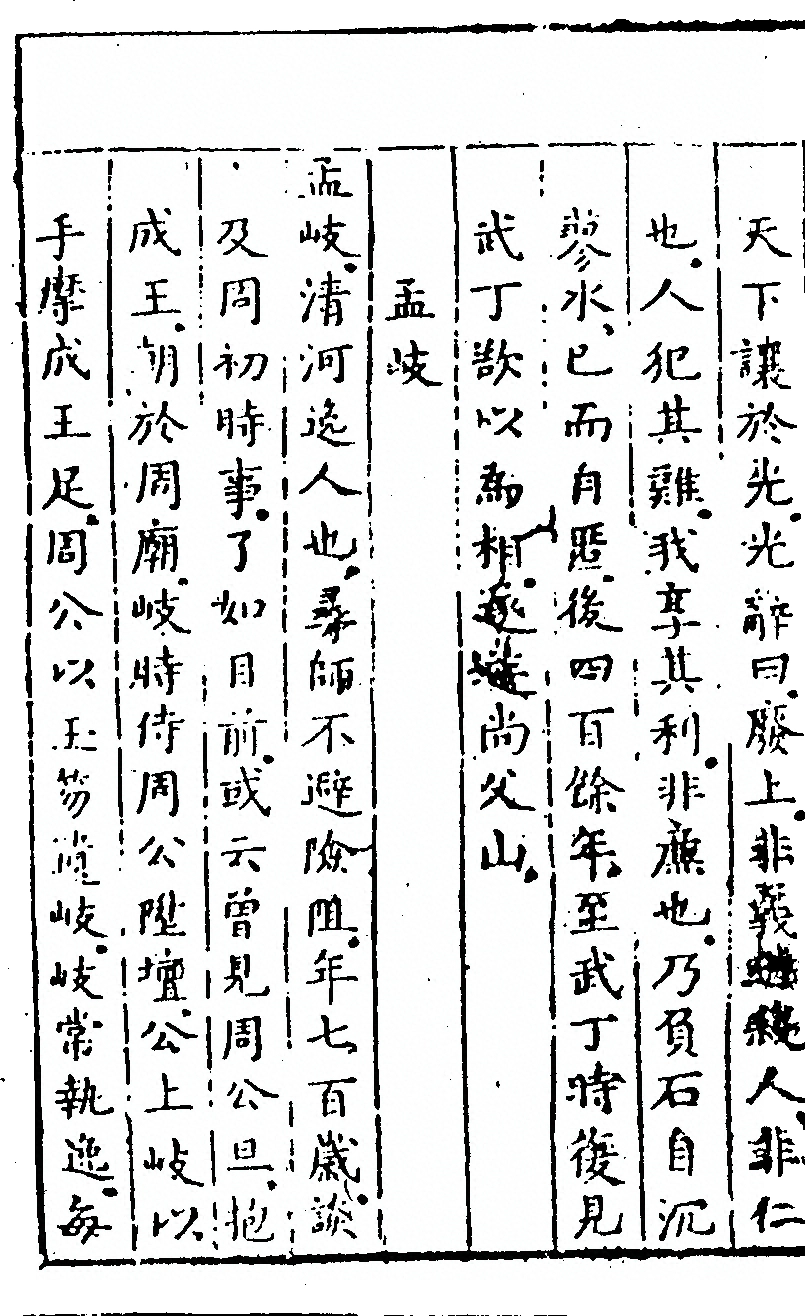 天下讓於光光辭曰廢上非義殺人非仁
也人犯其難我享其利非廉也乃負石自沉
蓼水已而自匿後四百餘年至武丁時復見
武丁欲以為相遂遊尚父山
孟岐
孟岐清河逸人也尋師不避險阻年七百歲談
及周初時事了如目前或云曾見周公旦抱
成王朝於周廟岐時侍周公陞壇公上岐以
手摩成王足周公以玉笏與岐岐常執逸每